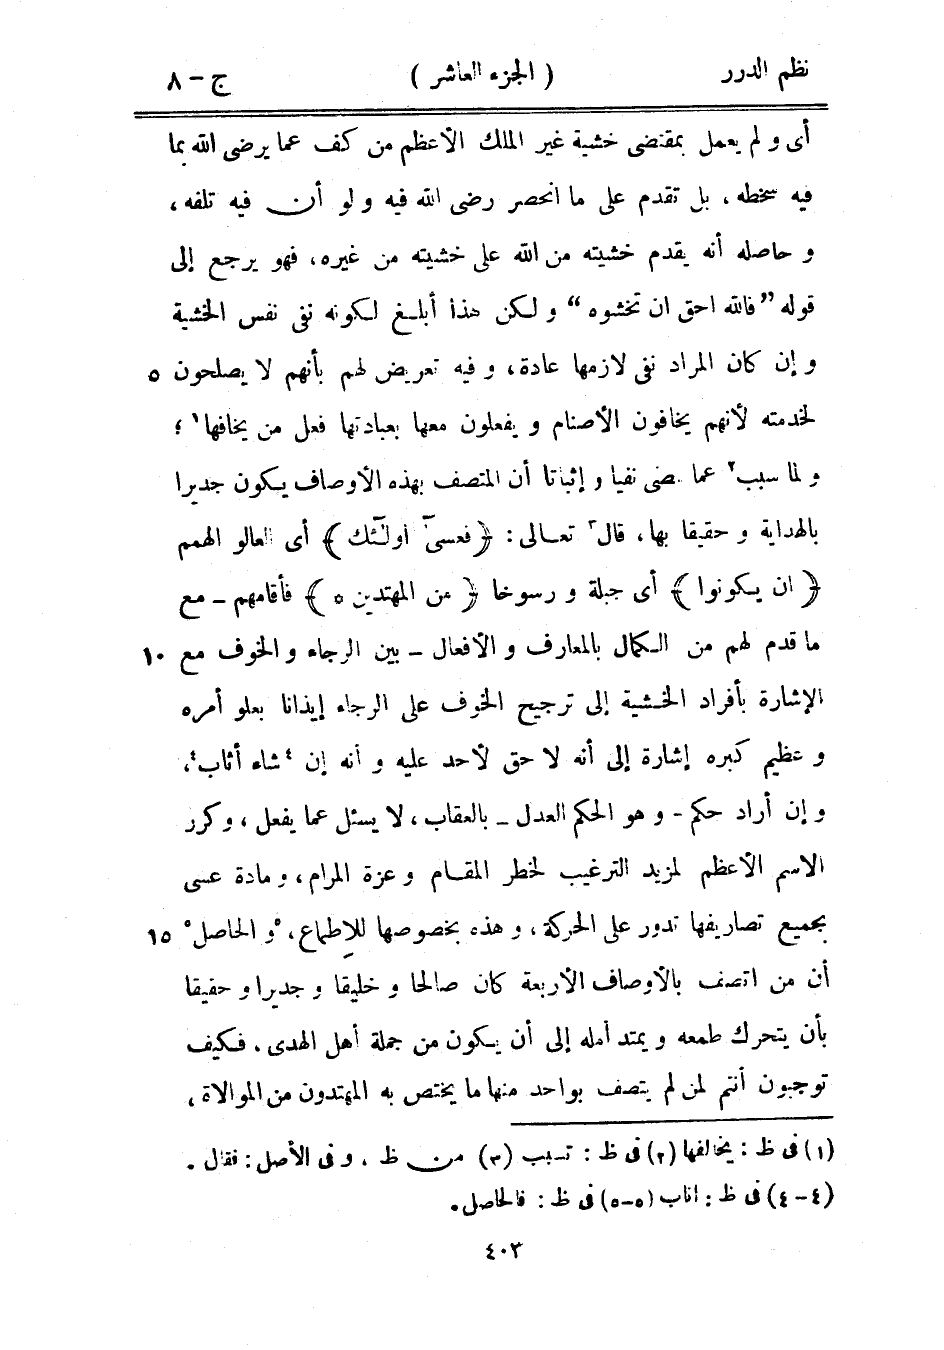 نظم الدرر ( الجزء العاشر ) ج – ٨
أى و لم يعمل بمقتضى خشية غير الملك الأعظم من كف عما يرضى الله بما
فيه سخطه ، بل تقدم على ما انحصر رضى الله فيه و لو أن فيه تلفه ،
و حاصله أنه يقدم خشيته من الله على خشيته من غيره، فهو يرجع إلى
قوله ”فالله احق ان تخشوه“ و لكن هذا أبلغ لكونه نفى نفس الخشية
و إن كان المراد نفى لازمها عادة، و فيه تعريض لهم بأنهم لا يصلحون ٥
لخدمته لأنهم يخافون الأصنام و يفعلون معها بعبادتها فعل من يخافها١ ؛
و لما سبب٢ عما مضى نفيا و إثباتا أن المتصف بهذه الأوصاف يكون جديرا
بالهداية و حقيقا بها، قال٣ تعالى: ﴿فعسىٓ اولٓئك﴾ أى العالو الهمم
﴿ ان يكونوا ﴾ أى جبلة و رسوخا ﴿ من المهتدين ٥ ﴾ فأقامهم – مع
ما قدم لهم من الكمال بالمعارف و الأفعال – بين الرجاء و الخوف مع ١٠
الإشارة بأفراد الخشية إلى ترجيح الخوف على الرجاء إيذانا بعلو أمره
و عظيم كبره إشارة إلى أنه لا حق لأحد عليه و أنه إن ٤شاء أثاب٤،
و إن أراد حكم - و هو الحكم العدل – بالعقاب ، لا يسئل عما يفعل ، و كرر
الاسم الأعظم لمزيد الترغيب لخطر المقام و عزة المرام، و مادة عسى
بجميع تصاريفها تدور على الحركة ، و هذه بخصوصها للإطماع، ٥و الحاصل٥ ١٥
أن من اتصف بالأوصاف الأربعة كان صالحا و خليقا و جديرا و حقيقا
بأن يتحرك طمعه و يمتد أمله إلى أن يكون من جملة أهل الهدى . فكيف
توجبون أنتم لمن لم يتصف بواحد منها ما يختص به المهتدون من الموالاة ،
(١) فى ظ : يخالفها (٢) فى ظ : تسبب (٣) من ظ ، و فى الأصل : فقال .
(٤ – ٤) فى ظ : اناب (٥–٥) فى ظ : فالحاصل.
٤٠٣